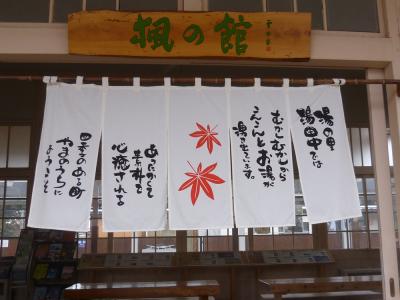 楓の館
湯の里
湯田中では
むかしむかしから
こんこんとお湯が
湧き出ています。
あったかくて
素朴な
心癒される
四季のある町
やまのうちに
ようこそ